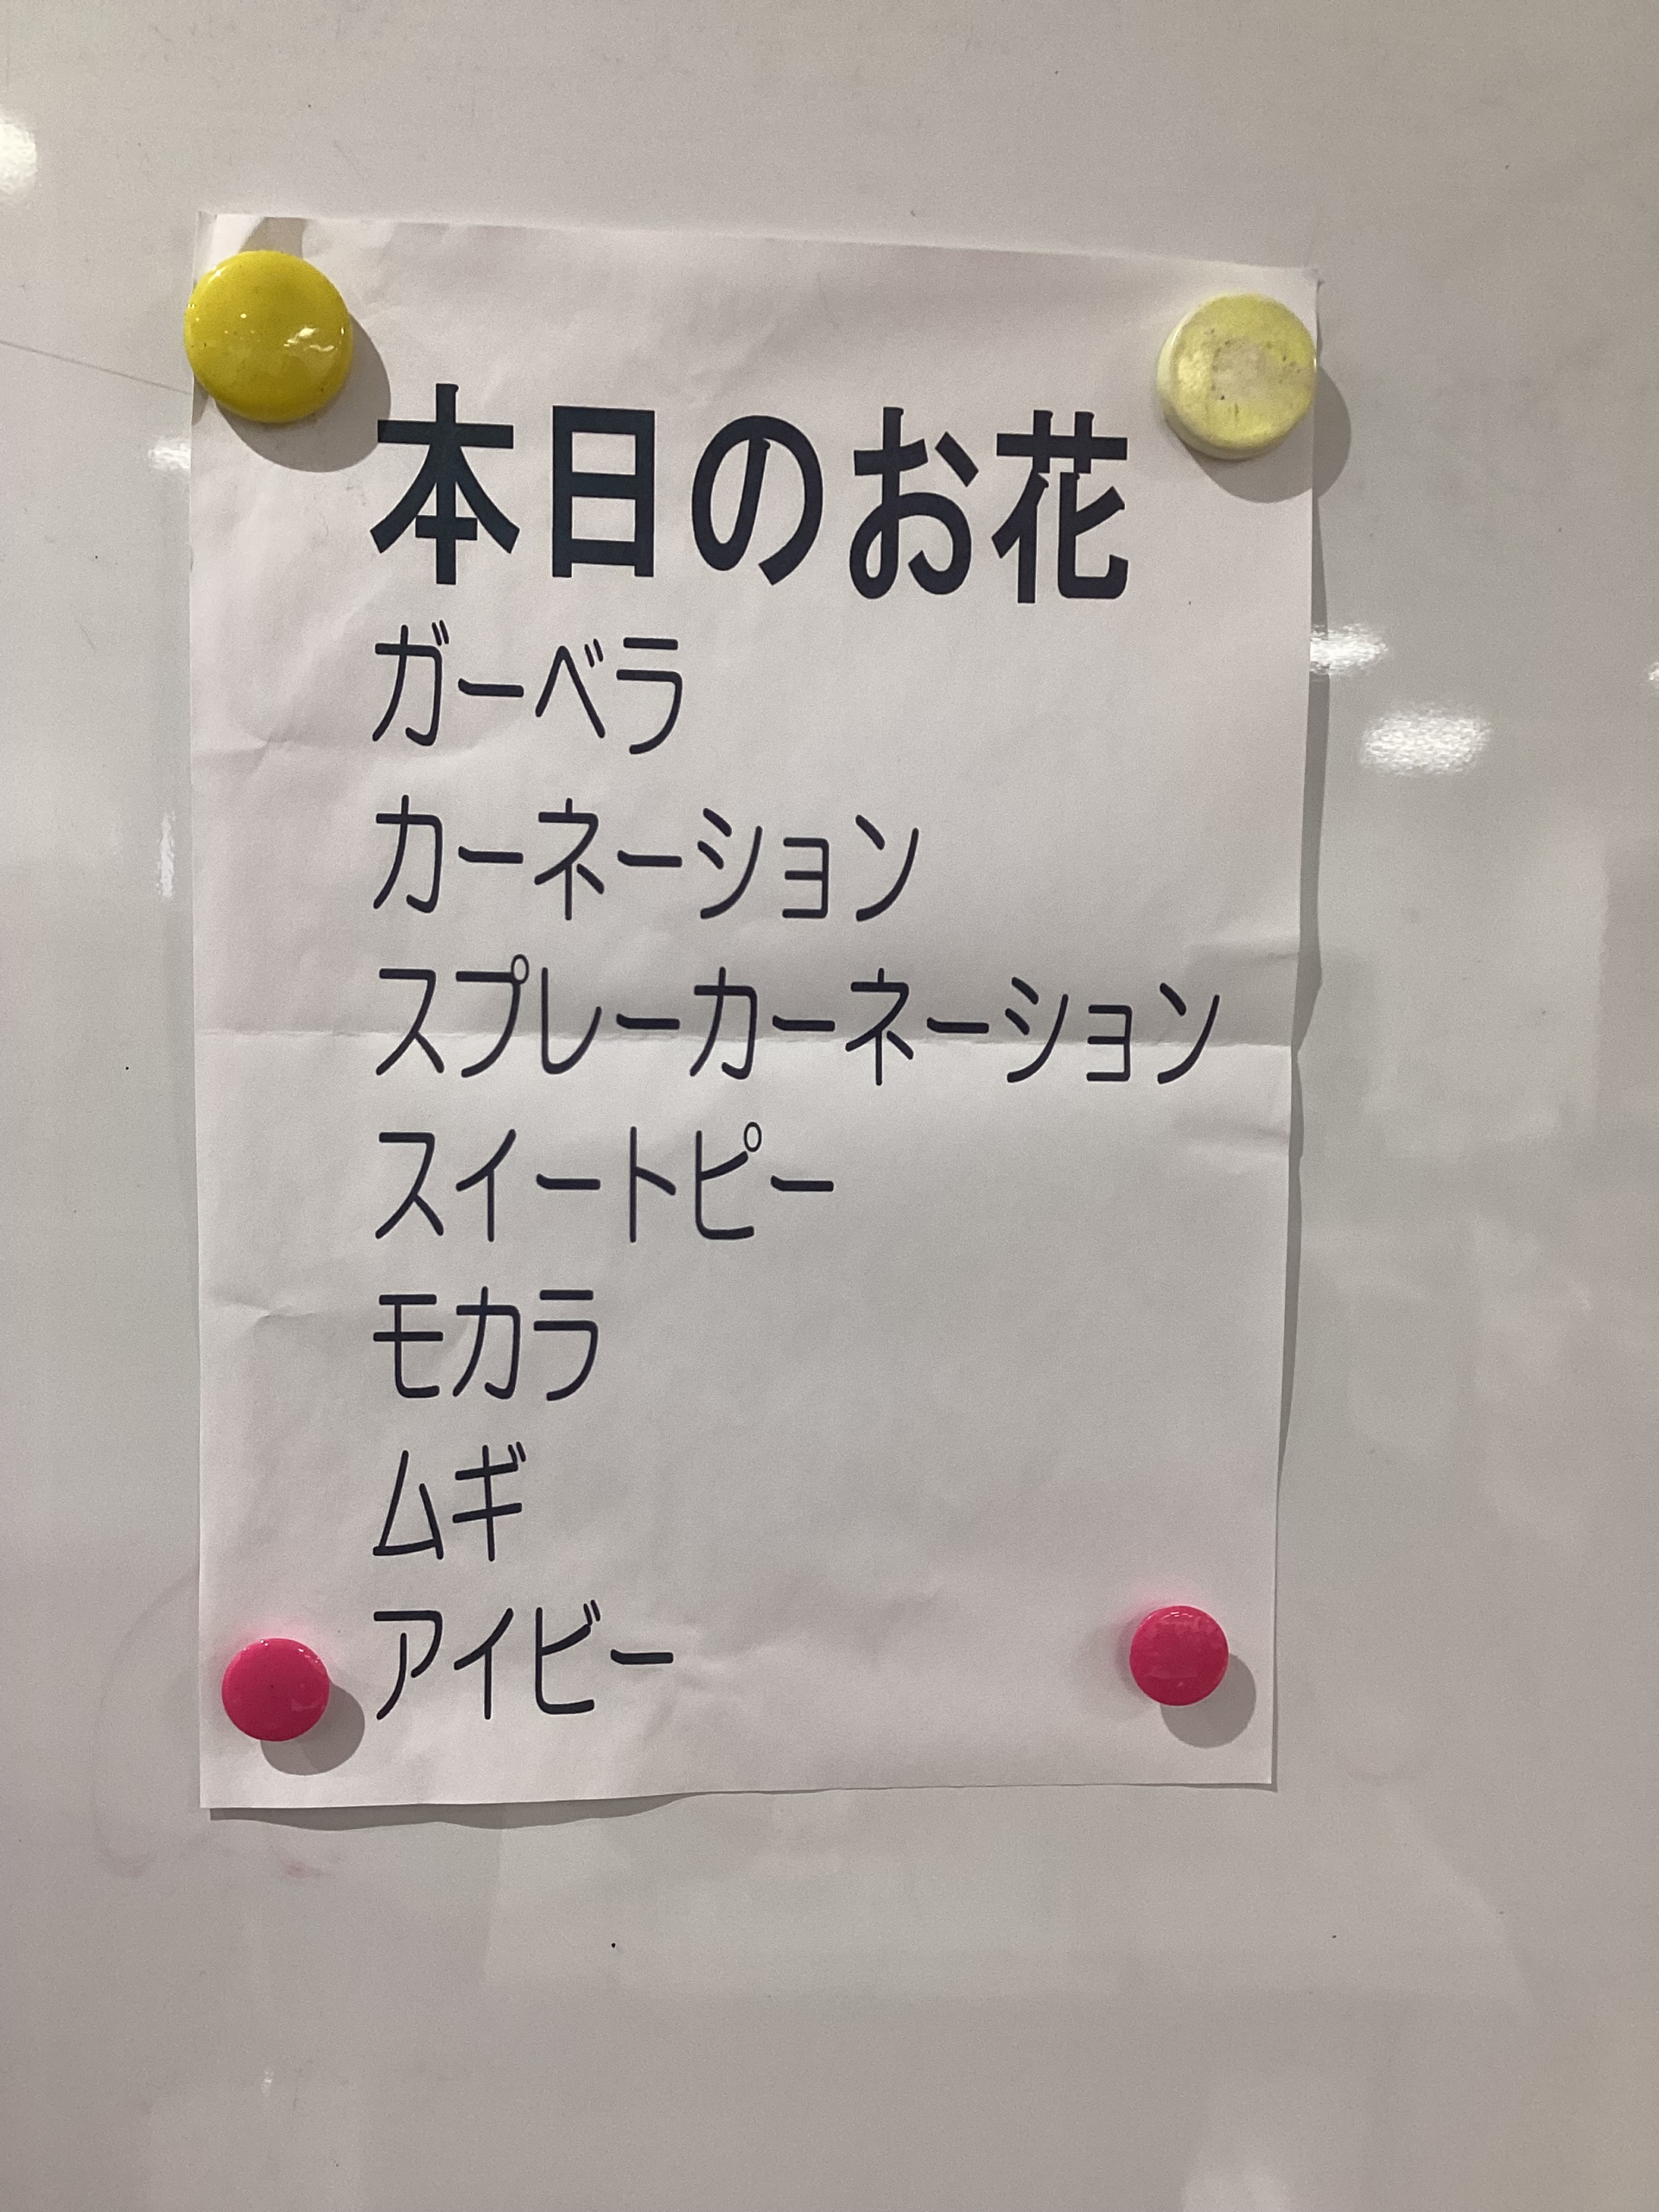 本日のお花
ガーベラ
カーネーション
スプレーカーネーション
スイートピー
モカラ
ムギ
アイビー